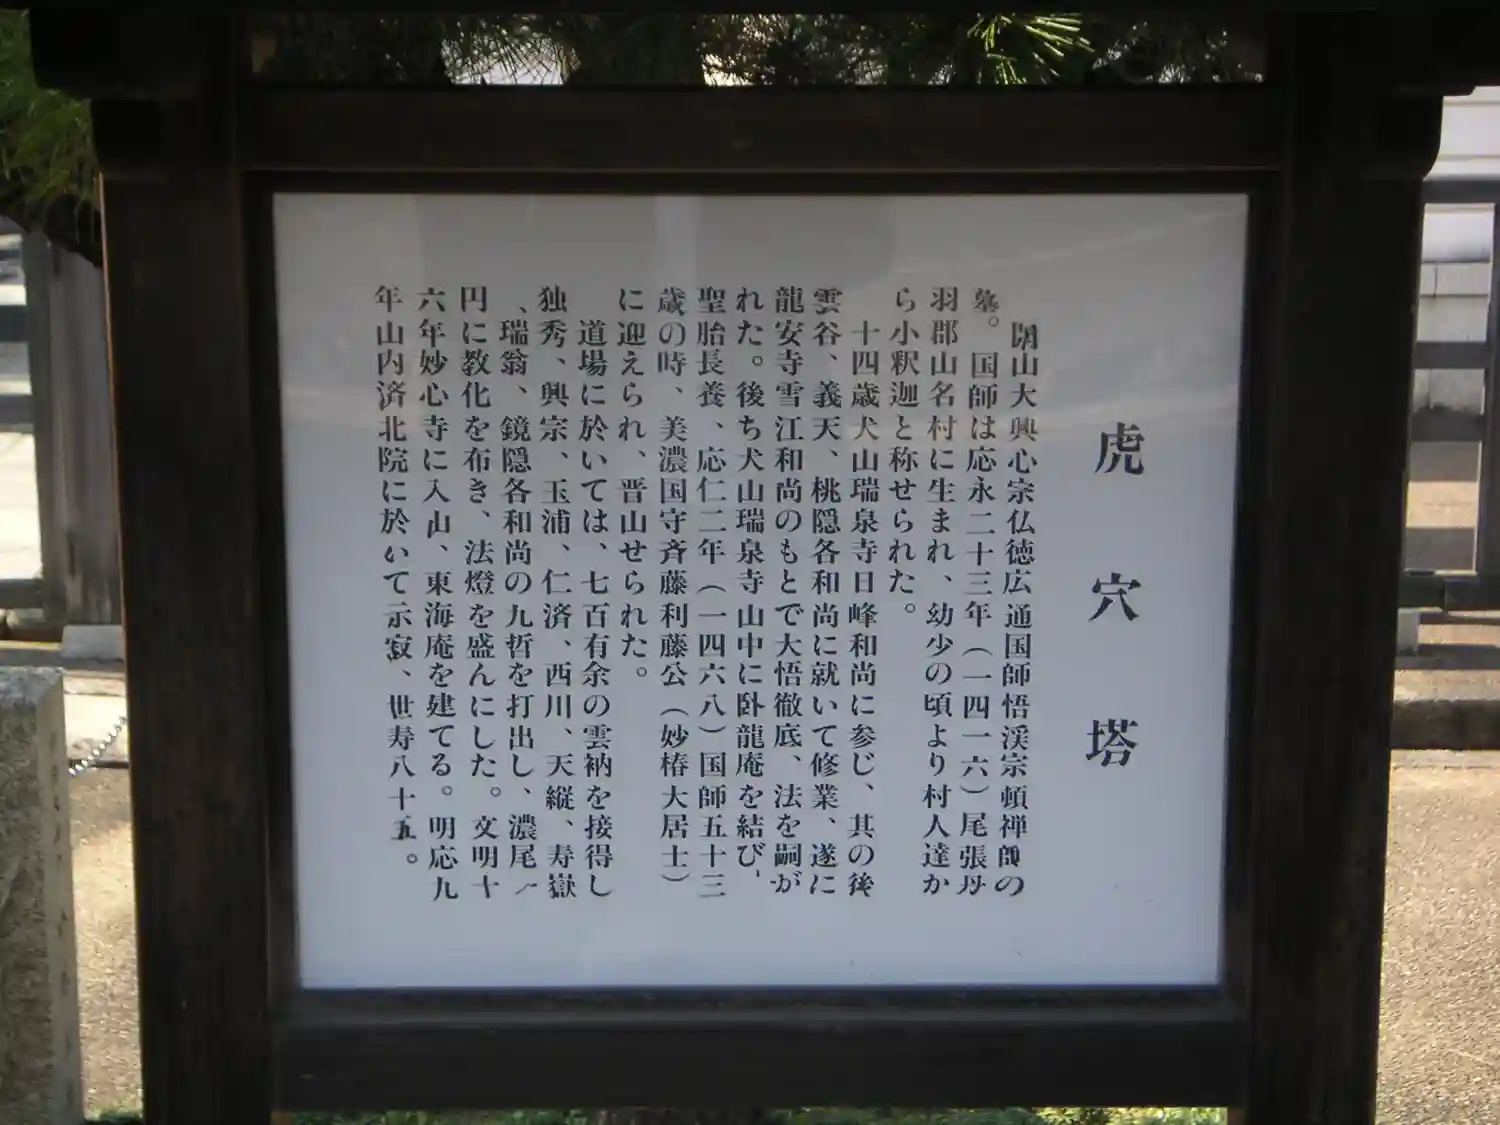 虎穴塔
開山大興心宗仏徳広通国師悟渓宗頓禅師の
墓。国師は応永二十三年（一四一六）尾張丹
羽郡山名村に生まれ、幼少の頃より村人達か
ら小釈迦と称せられた。
十四歳犬山瑞泉寺日峰和尚に参じ、其の後
雲谷、義天、桃隠各和尚に就いて修業、遂に
龍安寺雪江和尚のもとで大悟徹底、法を嗣が
れた。後ち犬山瑞泉寺山中に臥龍庵を結び、
聖胎長養、応仁二年（一四六八）国師五十三
歳の時、美濃国守斉藤利藤公（妙椿大居士）
に迎えられ、晋山せられた。
道場に於いては、七百有余の雲衲を接得し
独秀、興宗、玉浦、仁済、西川、天縦、寿嶽
、瑞翁、鏡隠各和尚の九哲を打出し、濃尾一
円に教化を布き、法燈を盛んにした。文明十
六年妙心寺に入山、東海庵を建てる。明応九
年山内済北院に於いて示寂、世寿八十五。